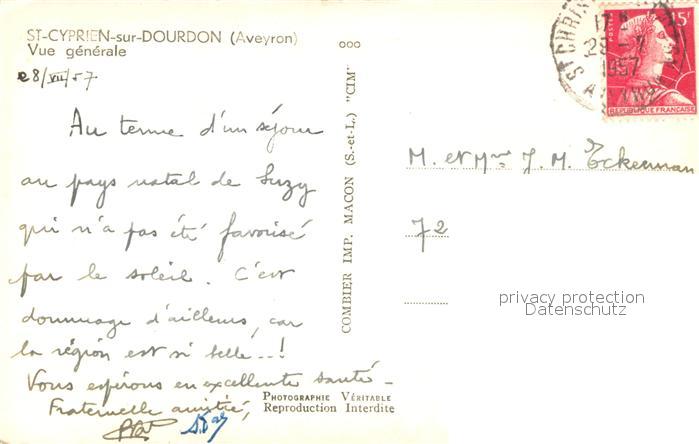 ST-CYPRIEN-sur-DOURDON (Aveyron)
Vue générale
28/VII/57
Au terme d'un séjour
au pays natal de Suzy
qui n'a pas été favorisé
par le soleil. C'est
dommage d'ailleurs, car
la région est si belle...!
Vous espérons en excellente santé -
Fraternelle amitié,
PHOTOGRAPHIE VÉRITABLE
Reproduction Interdite
COMBIER IMP. MACON (S.-et-L.) "CIM"
28-7
1957
15F
REPUBLIQUE FRANCAISE
M. et Mme J. M. Eckerman
72
privacy protection
Datenschutz